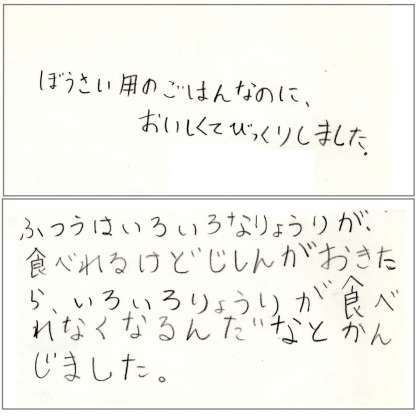 ぼうさい用のごはんなのに、
おいしくてびっくりしました。
ふつうはいろいろなりょうりが、
食べれるけどじしんがおきた
ら、いろいろりょうりが食べ
れなくなるんだなとかん
じました。